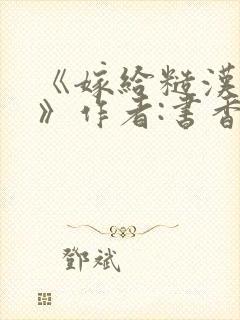 《嫁給糙漢
》作者:書香
鄧斌